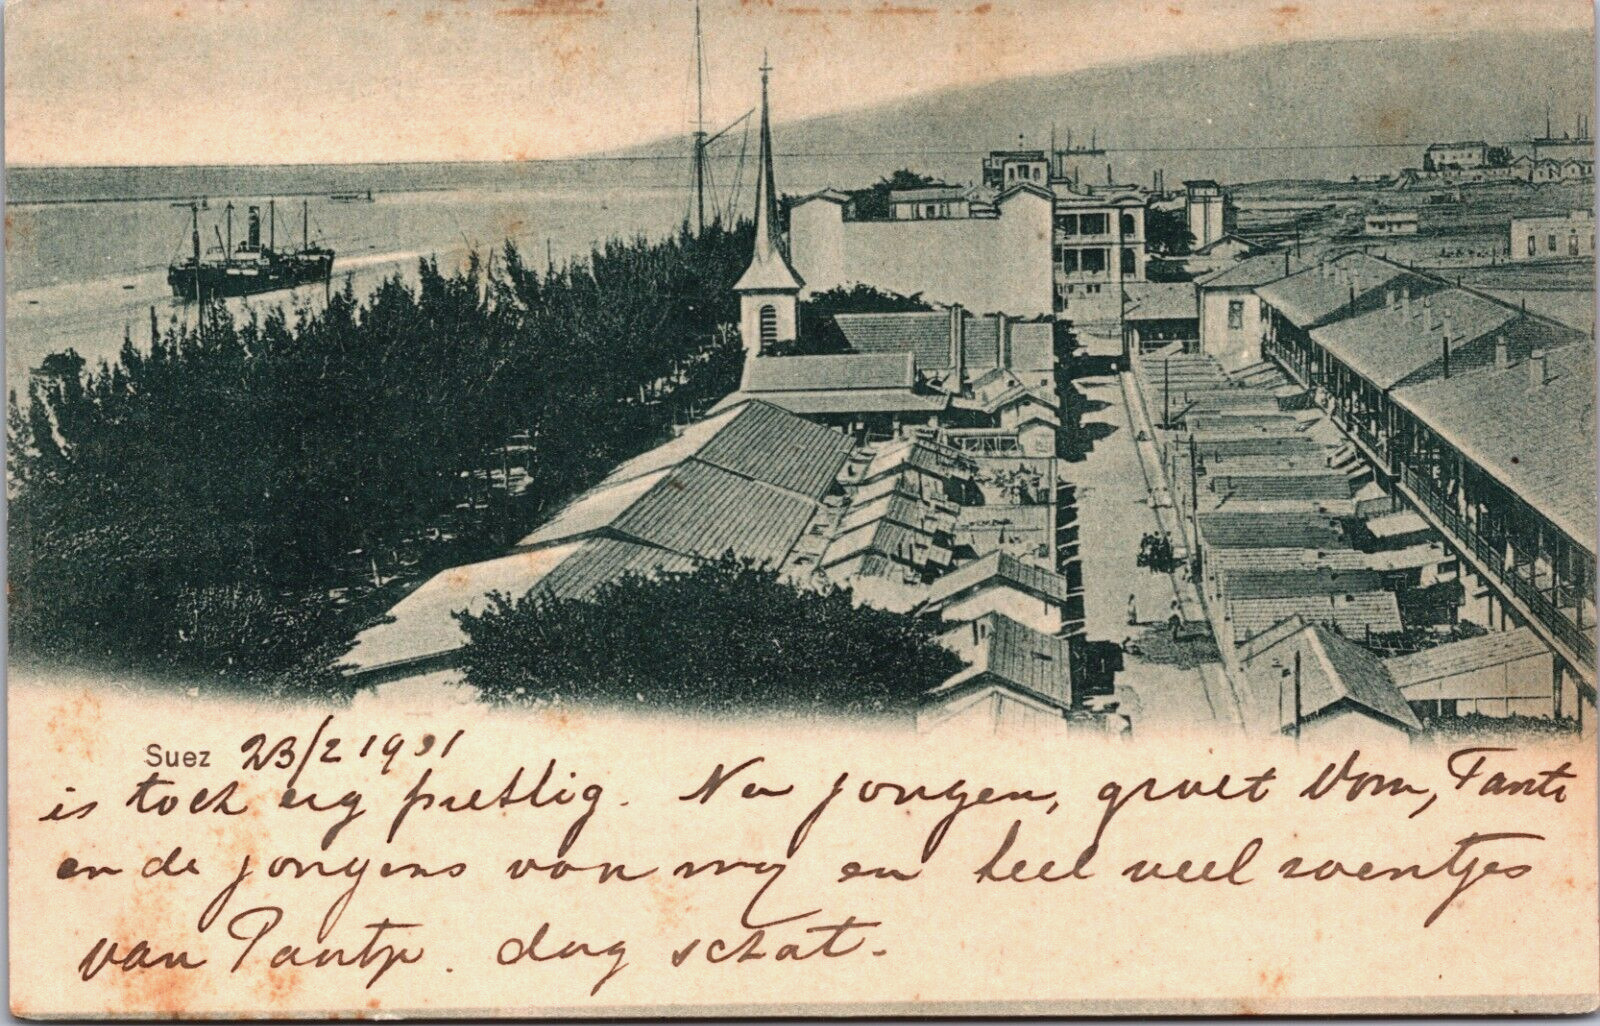 Suez 23/2 1901
is toch erg prettig. Nu jongen, groet Oom, Tante
en de jongens van mij en heel veel zoentjes
van Tantje. dag schat.